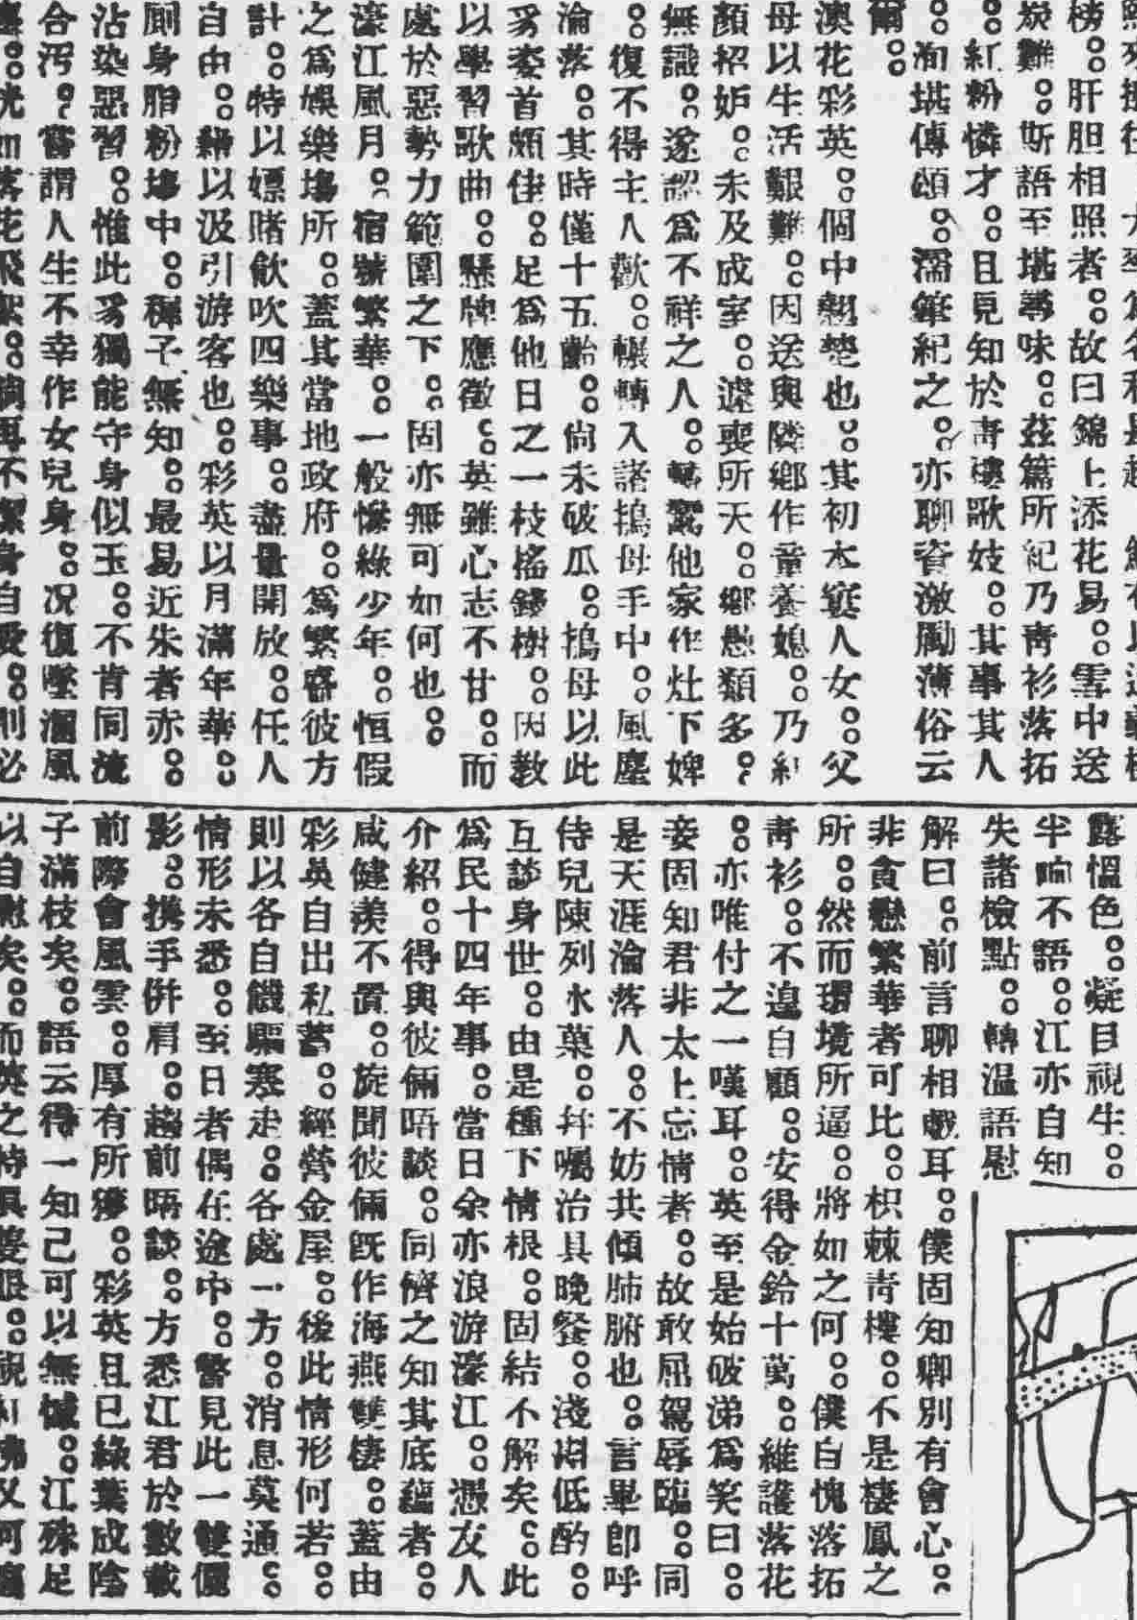 榜。肝胆相照者。故曰錦上添花易。雪中送
炭難。斯語至堪尋味。茲篇所紀乃靑衫落拓
。紅粉憐才。且見知於靑樓歌妓。其事其人
。洵堪傳頌。濡筆紀之。亦聊資激勵薄俗云
爾。
澳花彩英。個中翹楚也。其初本窶人女。父
母以生活艱難。因送與隣鄉作童養媳。乃紅
顏招妒。未及成室。遽喪所天。鄉愚類多。
無識。遂認為不祥之人。轉鬻他家作灶下婢
。復不得主人歡。輾轉入諸鴇母手中。風塵
淪落。其時僅十五齡。尙未破瓜。鴇母以此
豸姿首頗佳。足爲他日之一枝搖錢樹。因敎
以學習歌曲。懸牌應徵。英雖心志不甘。而
處於惡勢力範圍之下。固亦無可如何也。
濠江風月。宿號繁華。一般慘綠少年。恒假
之為娛樂塲所。蓋其當地政府。爲繁盛彼方
計。特以嫖賭飮吹四樂事。盡量開放。任人
自由。藉以汲引游客也。彩英以月滿年華。
厠身脂粉塲中。穉子無知。最易近朱者亦。
沾染惡習。惟此豸獨能守身似玉。不肯同流
合汚。嘗謂人生不幸作女兒身。况復墜溷風
露慍色。凝目視生。
半晌不語。江亦自知
失諸檢點。轉溫語慰
解曰。前言聊相戲耳。僕固知卿別有會心。
非貪戀繁華者可比。枳棘靑樓。不是棲鳳之
所。然而環境所逼。將如之何。僕自愧落拓
靑衫。不遑自顧。安得金鈴十萬。維護落花
。亦唯付之一嘆耳。英至是始破涕爲笑曰。
妾固知君非太上忘情者。故敢屈駕辱臨。同
是天涯淪落人。不妨共傾肺腑也。言畢卽呼
侍兒陳列水菓。幷囑治具晚餐。淺斟低酌。
互談身世。由是種下情根。固結不解矣。此
爲民十四年事。當日余亦浪游濠江。憑友人
介紹。得與彼倆晤談。同儕之知其底蘊者。
咸健羨不置。旋聞彼倆旣作海燕雙棲。蓋由
彩英自出私蓄。經營金屋。後此情形何若。
則以各自饑驅塞走。各處一方。消息莫通。
情形未悉。至日者偶在途中。瞥見此一雙儷
影。携手併肩。趨前晤談。方悉江君於數載
前際會風雲。厚有所獲。彩英且已綠葉成陰
子滿枝矣。語云得一知己可以無憾。江殊足